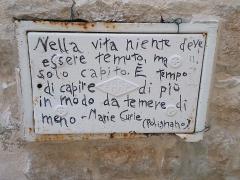 Nella vita niente deve
essere temuto, ma
solo capito. È tempo
di capire di più
in modo da temere di
meno - Marie Curie (Polignano)